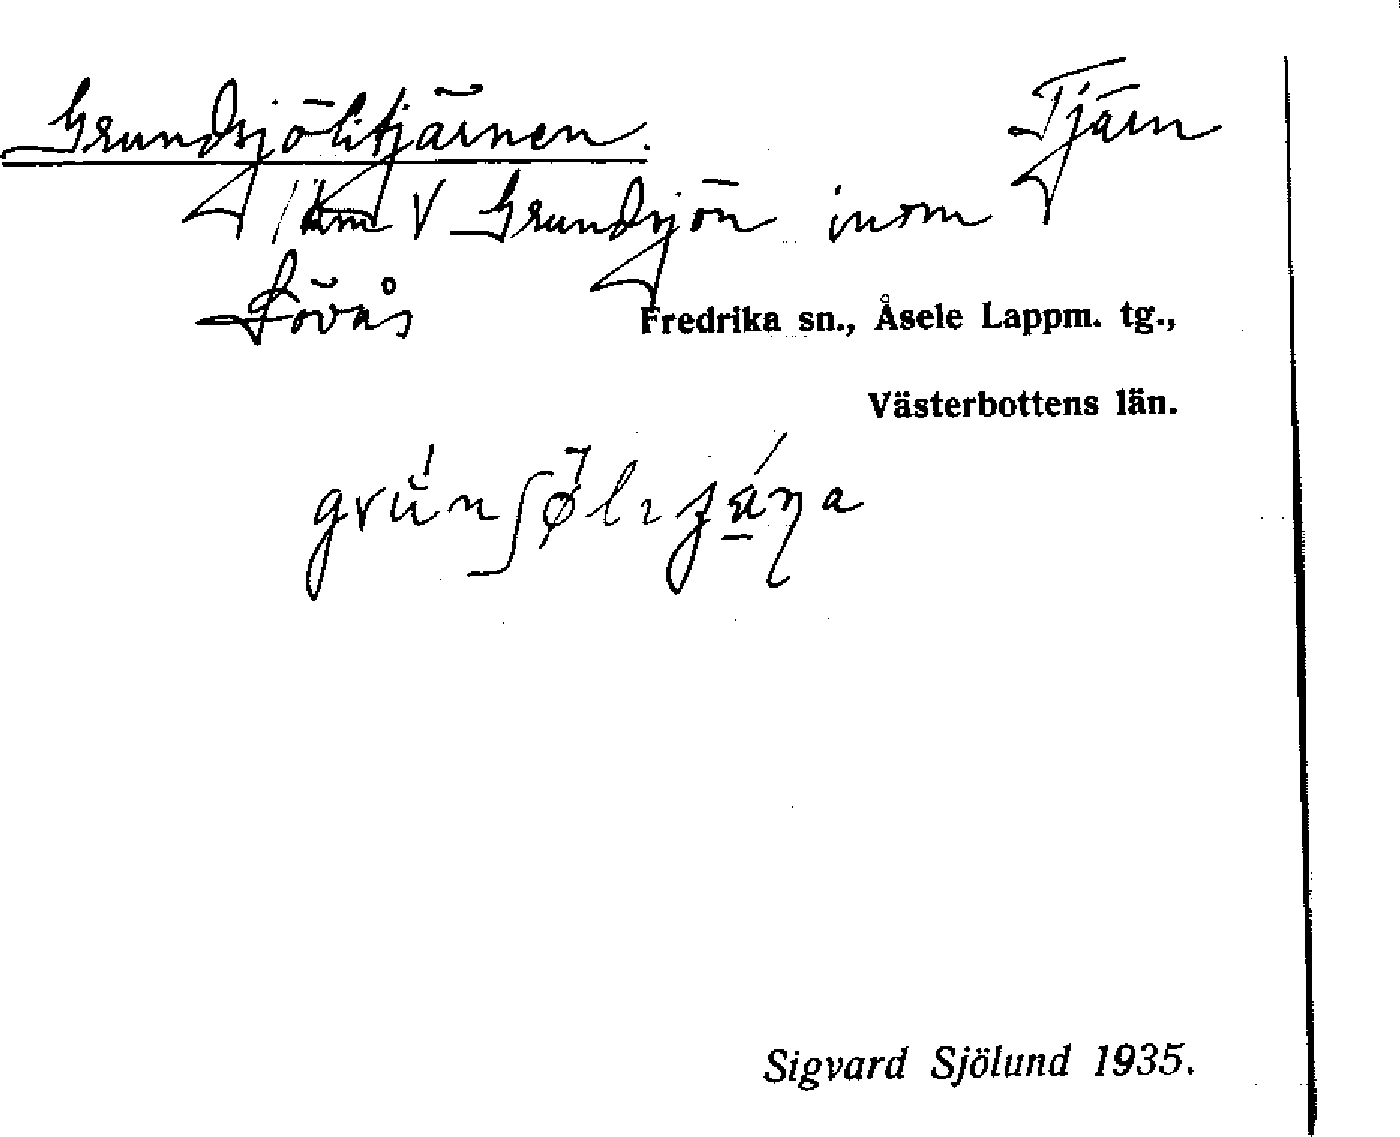 Grundsjölitjärnen. Tjärn
1 km V Grundsjön inom
Lövås Fredrika sn., Åsele Lappm. tg.,
Västerbottens län.
Sigvard Sjölund 1935.